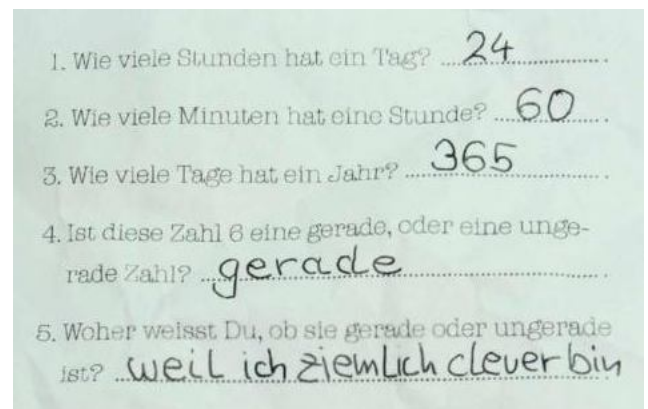 1. Wie viele Stunden hat ein Tag? 24
2. Wie viele Minuten hat eine Stunde? 60
3. Wie viele Tage hat ein Jahr? 365
4. Ist diese Zahl 6 eine gerade, oder eine unge-
rade Zahl? gerade
5. Woher weisst Du, ob sie gerade oder ungerade
ist? weil ich ziemlich clever bin